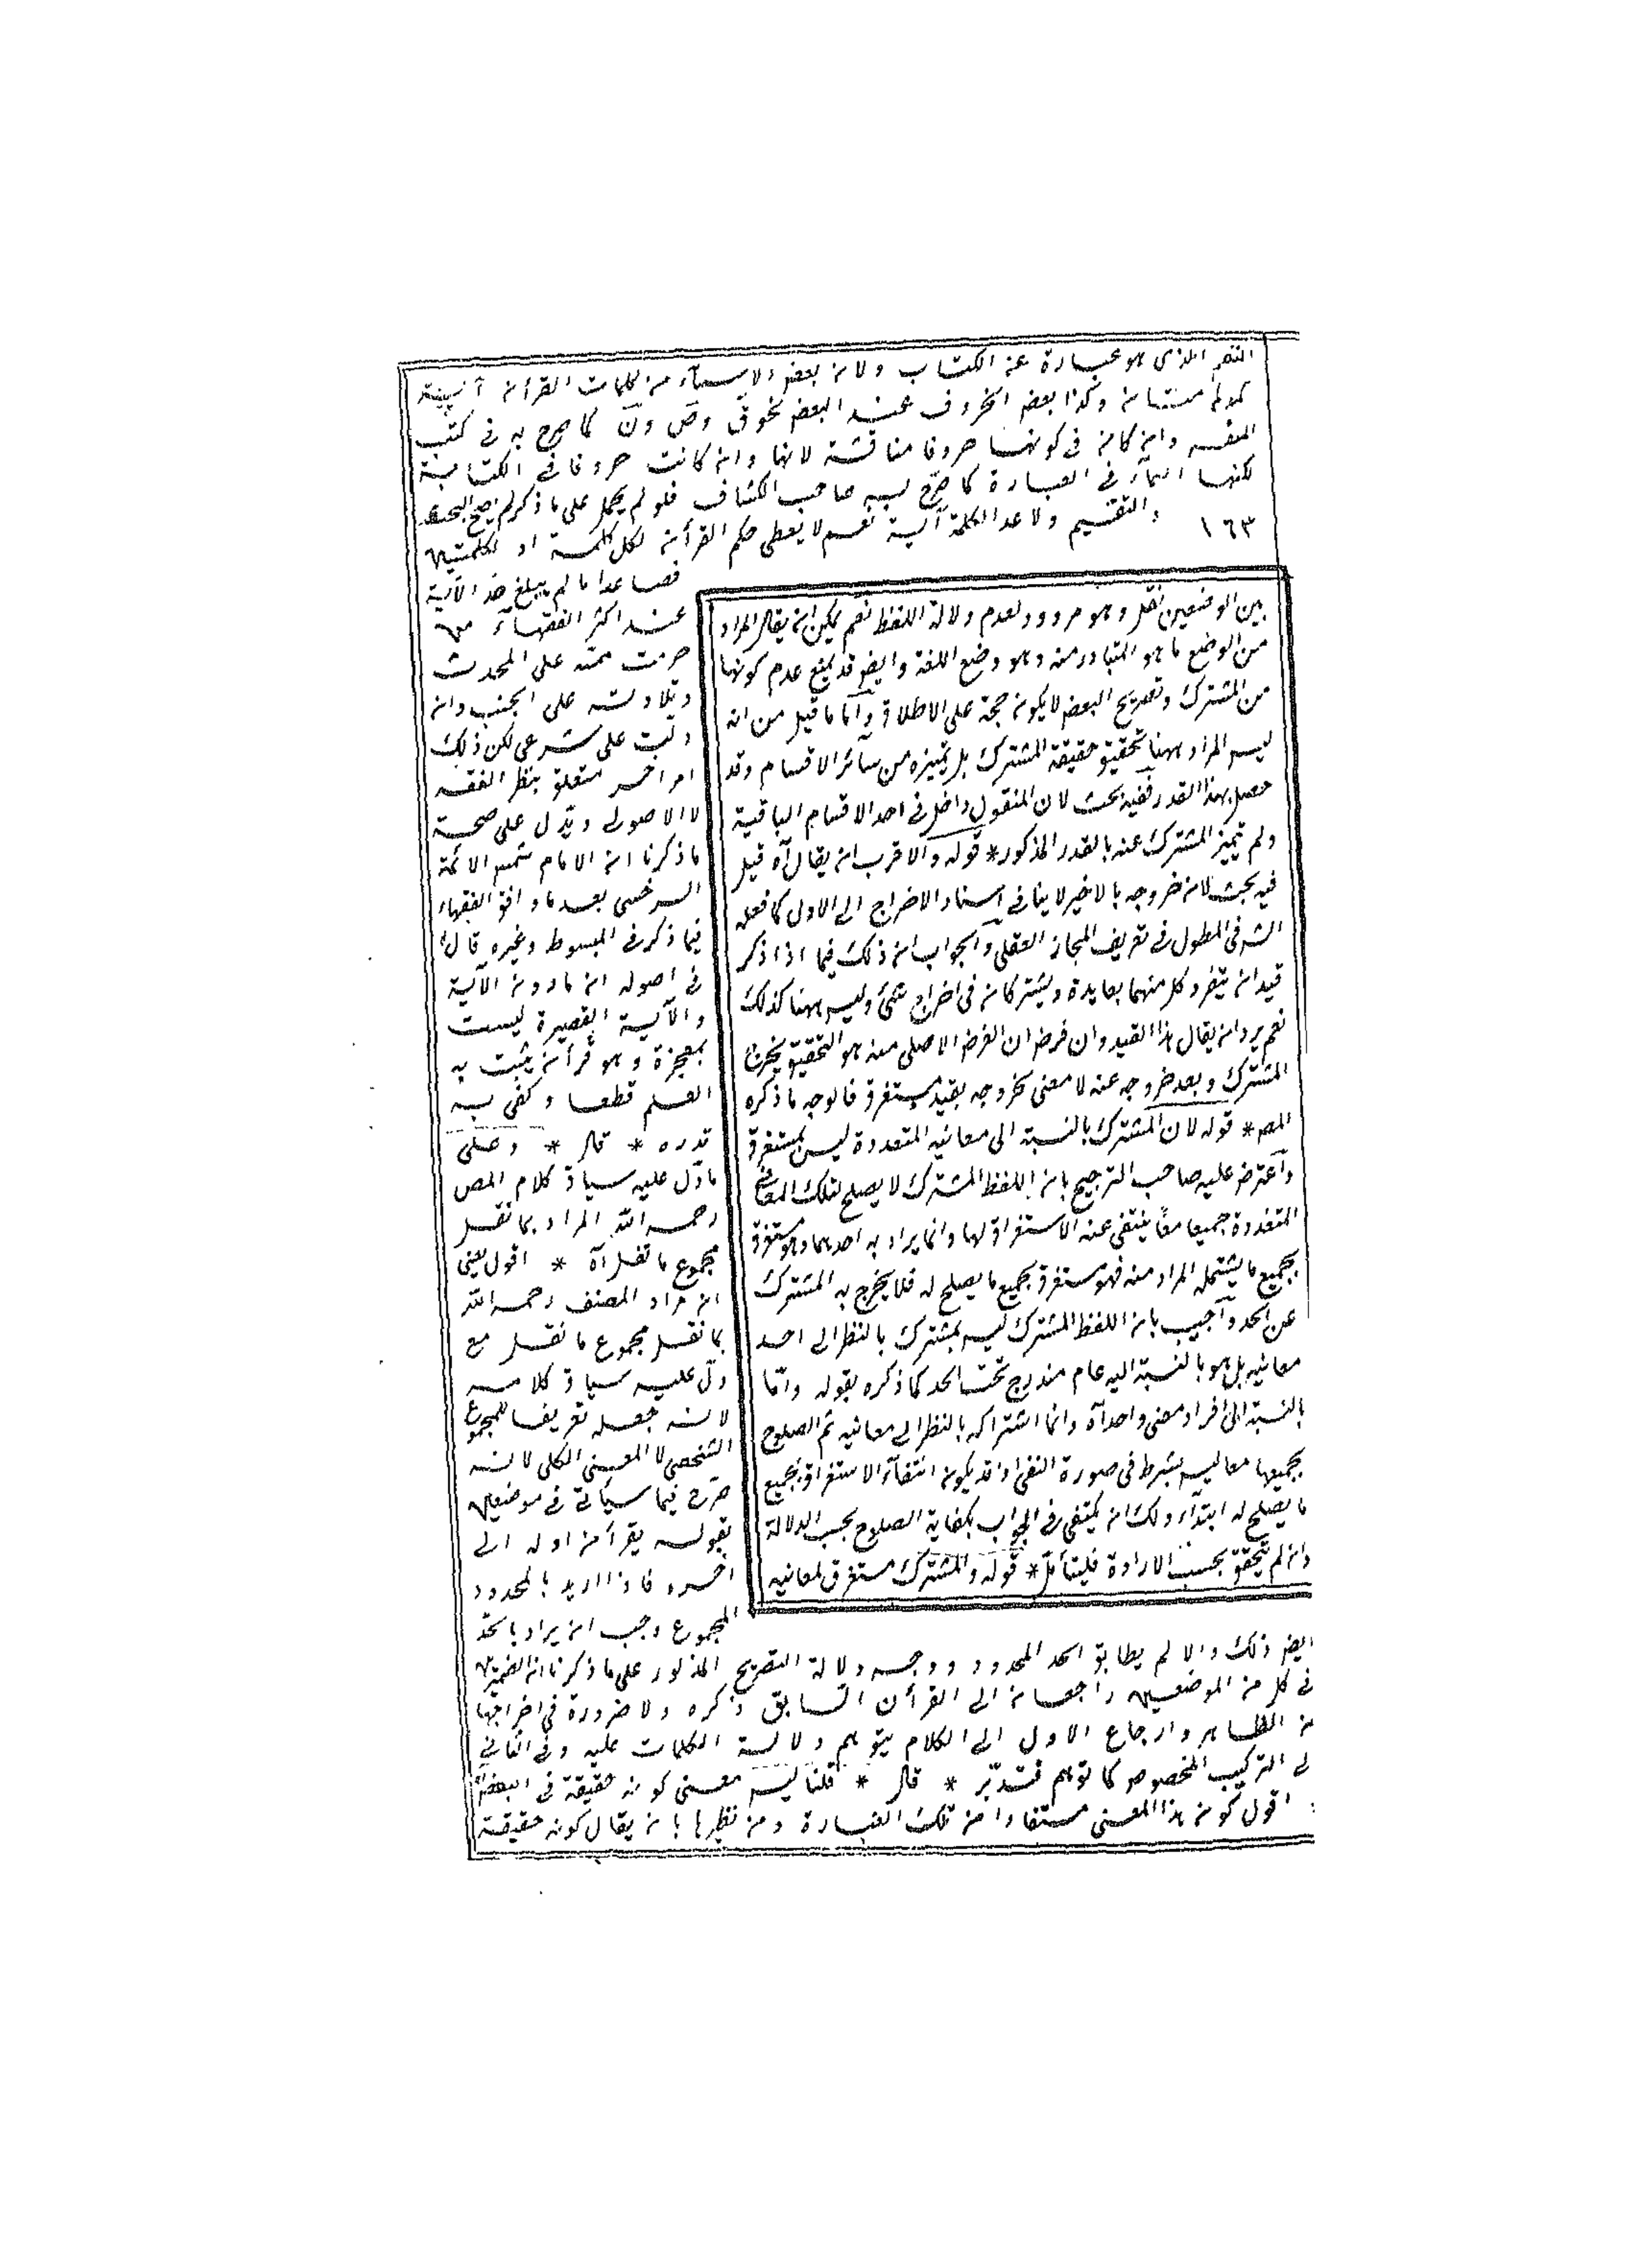 النظم الذى هو عبارة عن الكتاب ولان بعض الاسمآء من كلمات القرأن آئيته
كمدهامتان وكذا بعض الحروف عند البعض نحو قٓ وصٓ ونٓ كما صرح به فى كتب
الفقه وان كان فى كونها حروفا مناقشة لانها وان كانت حروفا فى الكتابة
لكنها اسمآء فى العبارة كما صرّح به صاحب الكشاف فلو لم يحمل على ما ذكر لم يصح البحث
١٦٣
والتقسيم ولا عد الكلمة آية نعم لا يعطى حكم القرأن لكل كلمة او لكلمتين
فصاعدا ما لم يبلغ حد الآية
عند اكثر الفقهآء من
حرمت مسّه على المحدث
وتلاوته على الجنب وان
دلّت على شرعى لكن ذلك
امر اخر متعلق بنظر الفقه
لا الاصولى ويدل على صحة
ما ذكرنا ان الامام شمس الائمة
السرخسى بعد ما وافق الفقهاء
فيما ذكر فى المبسوط وغيره قال
فى اصوله ان ما دون الآية
والآية القصيرة ليست
بمعجزة وهو قرأن يثبت به
العلم قطعا وكفى به
قدره * قال * وعلى
ما دل عليه سياق كلام المص
رحمه الله المراد بما نقل
مجموع ما نقل آه * اقول يعنى
ان مراد المصنف رحمه الله
بما نقل مجموع ما نقل مع
دل عليه سياق كلامه
لانه جعله تعريفا للمجموع
الشخصى لا المعنى الكلى لانه
صرّح فيما سيأتى فى موضعين
بقوله يقرأ من اوله الى
اخره فاذا اريد بالمحدود
المجموع وجب ان يراد بالحد
بين الوضعين نقل وهو مردود لعدم دلالة اللفظ نعم يمكن ان يقال المراد
من الوضع ما هو المتبادر منه وهو وضع اللغة وايض قد يمنع عدم كونها
من المشترك وتصريح البعض لا يكون حجة على الاطلاق وآما ما قيل من انه
ليس المراد ههنا تحقيق حقيقة المشترك بل تمييزه من سائر الاقسام وقد
حصل بهذا القدر ففيه بحث لان المنقول داخل فى احد الاقسام الباقية
ولم يتميز المشترك عنه بالقدر المذكور * قوله والاقرب ان يقال آه قيل
فيه بحث لان خروجه بالاخير لا ينافى اسناد الاخراج الى الاول كما فعله
الش فى المطول فى تعريف المجاز العقلى والجواب ان ذلك فيما اذا ذكر
قيد ان يتفرد كل منهما بفايدة ويشتركان فى اخراج شئ وليس ههنا كذلك
نعم يرد ان يقال هذا القيد وان فرض ان الغرض الاصلى منه هو التحقيق يخرج
المشترك وبعد خروجه عنه لا معنى لخروجه بقيد مستغرق فالوجه ما ذكره
المص * قوله لان المشترك بالنسبة الى معانيه المتعددة ليس بمستغرق
وآعترض عليه صاحب الترجيح بان اللفظ المشترك لا يصلح لتلك المعانى
المتعددة جميعا معًا ينتفى عنه الاستغراق لها وانما يراد به احدهما وهو مستغرق
لجميع ما يشتمله المراد منه فهو مستغرق لجميع ما يصلح له فلا يخرج به المشترك
عن الحد وآجيب بان اللفظ المشترك ليس بمشترك بالنظر الى احد
معانيه بل هو بالنسبة اليه عام مندرج تحت الحد كما ذكره بقوله وامّا
بالنسبة الى افراد معنى واحد آه وانما اشتراكه بالنظر الى معانيه ثم الصلوح
لجميعها معا ليس بشرط فى صورة النفى اذ قد يكون انتفآء الاستغراق لجميع
ما يصلح له ابتدآء ولك ان يكتفى فى الجواب بكفاية الصلوح بحسب الدلالة
وان لم يتحقق بحسب الارادة فليتأمّل * قوله والمشترك مستغرق لمعانيه
ايض ذلك والا لم يطابق الحد المحدود ووجه دلالة التصريح المذكور على ما ذكرنا ان الضميرين
فى كل من الموضعين راجعان الى القرأن السابق ذكره ولا ضرورة فى اخراجها
من الظاهر وارجاع الاول الى الكلام بتوهم دلالة الكلمات عليه وفى الثانى
لى التركيب المخصوص كما توهم فتدبّر * قال * قلنا ليس معنى كونه حقيقة فى البعض
اقول كون هذا المعنى مستفادا من تلك العبارة ومن نظيرها بان يقال كونه حقيقة